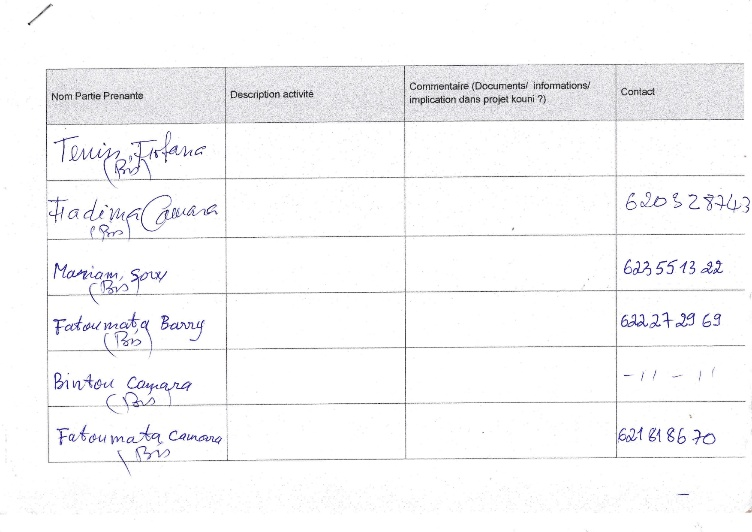 Nom Partie Prenante
Description activité
Commentaire (Documents/ informations/
implication dans projet kouni ?)
Contact
Tenin Fofana
(Bis)
Fiadima Camara
(Bis)
620328743
Mariam, Soxy
(Bis)
623551322
Fatoumata Barry
(Bis)
622272969
Bintou Camara
(Bis)
-11 - 11
Fatoumata Camara
(Bis
621818670